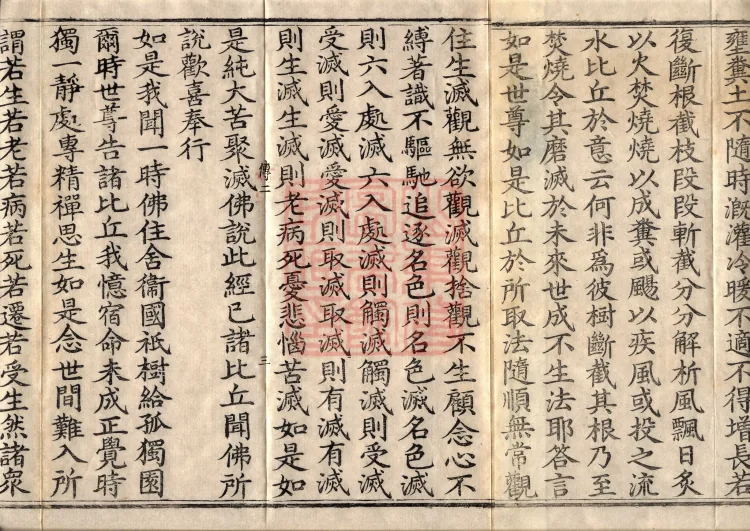 壅糞土不隨時溉灌冷暖不適不得增長若
復斷根截枝段段斬截分分解析風飄日炙
以火焚燒燒以成糞或颺以疾風或投之流
水比丘於意云何非爲彼樹斷截其根乃至
焚燒令其磨滅於未來世成不生法耶答言
如是世尊如是比丘於所取法隨順無常觀
住生滅觀無欲觀滅觀捨觀不生顧念心不
縛著識不驅馳追逐名色則名色滅名色滅
則六入處滅六入處滅則觸滅觸滅則受滅
受滅則愛滅愛滅則取滅取滅則有滅有滅
則生滅生滅則老病死憂悲惱苦滅如是如
傅二 三
是純大苦聚滅佛說此經已諸比丘聞佛所
說歡喜奉行
如是我聞一時佛住舍衞國祇樹給孤獨園
爾時世尊告諸比丘我憶宿命未成正覺時
獨一靜處專精禪思生如是念世間難入所
謂若生若老若病若死若遷若受生然諸衆